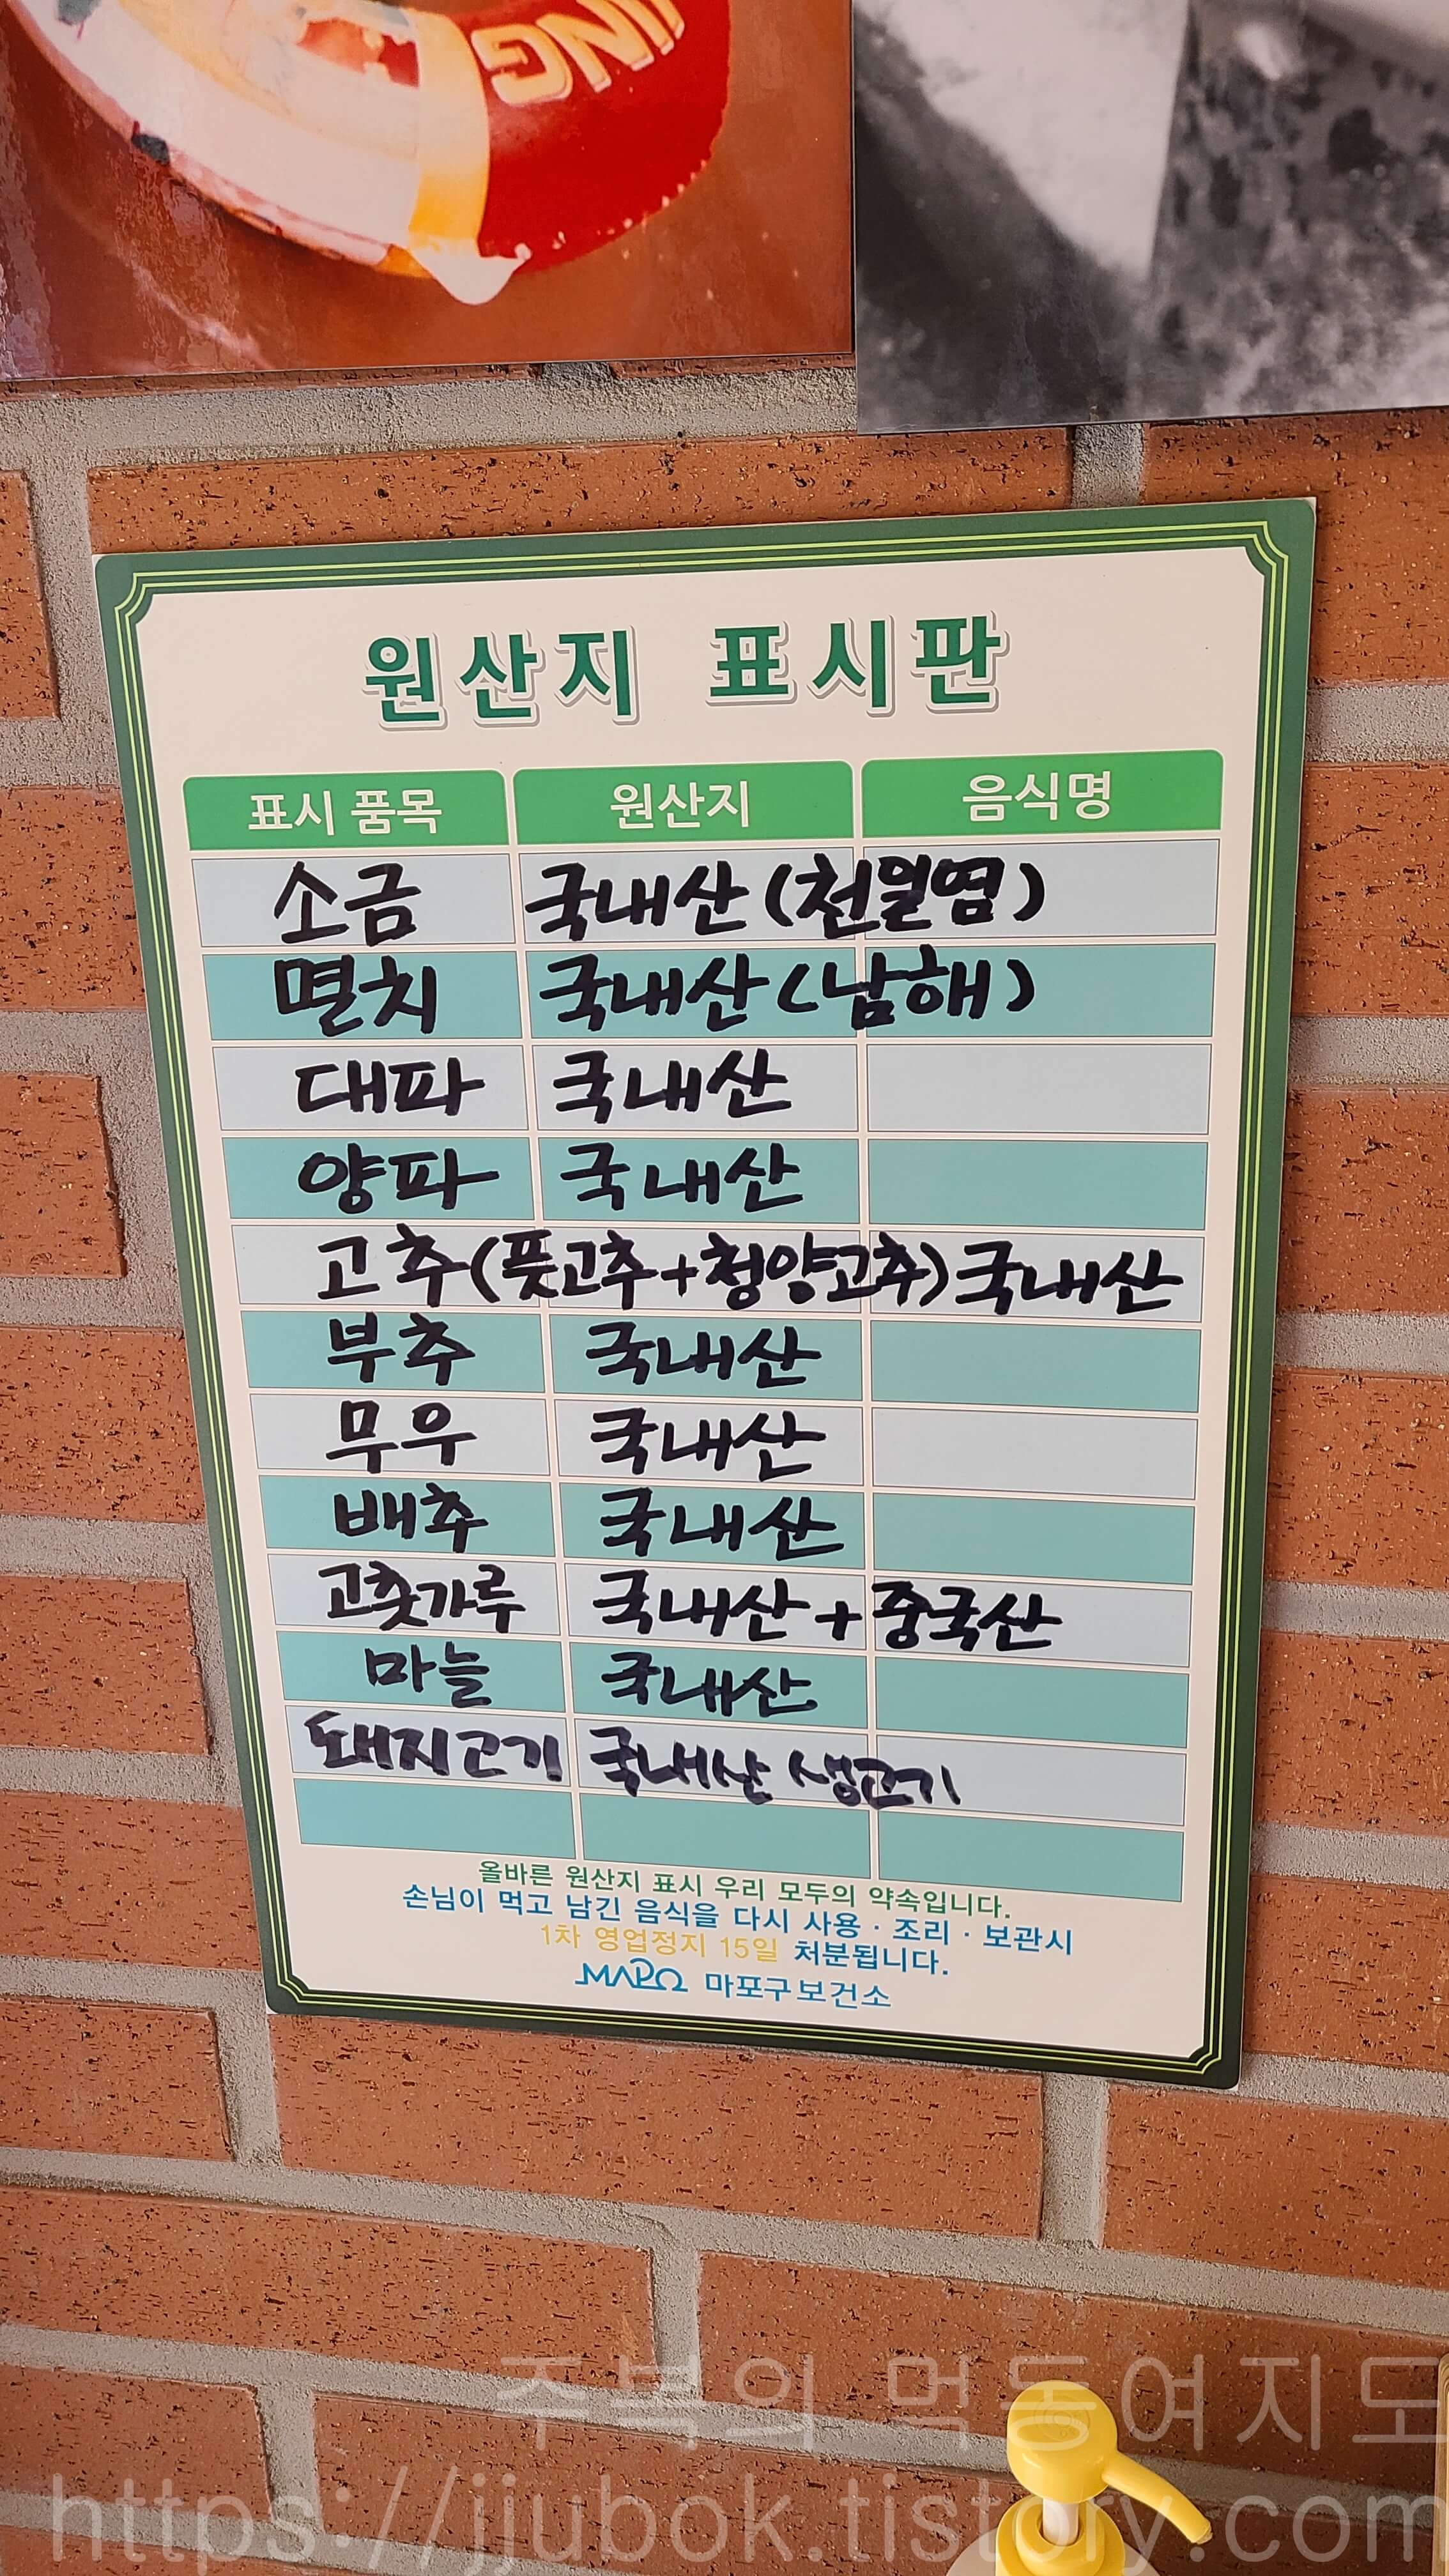 ING
원산지 표시판
표시 품목 원산지 음식명
소금 국내산(천일염)
멸치 국내산(남해)
대파 국내산
양파 국내산
고추(풋고추+청양고추)국내산
부추 국내산
무우 국내산
배추 국내산
고춧가루 국내산+중국산
마늘 국내산
돼지고기 국내산 생고기
올바른 원산지 표시 우리 모두의 약속입니다.
손님이 먹고 남긴 음식을 다시 사용 · 조리 · 보관시
1차 영업정지 15일 처분됩니다.
MAPO 마포구보건소
주복의 먹동여지도
https://jjubok.tistory.com